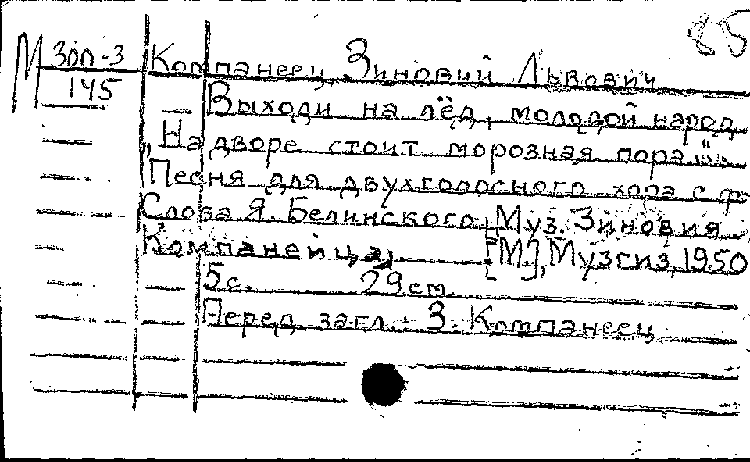 85
М Зоп-3 Компанеец, Зиновий Львович
145
— Выходи на лёд, молодой народ.
„На дворе стоит морозная пора..."
Песня для двухголосного хора с ф
Слова Я. Белинского. Муз. Зиновия
Компанейца. [М.], Музгиз, 1950
5 с. 29 см.
Перед загл.: З. Компанеец